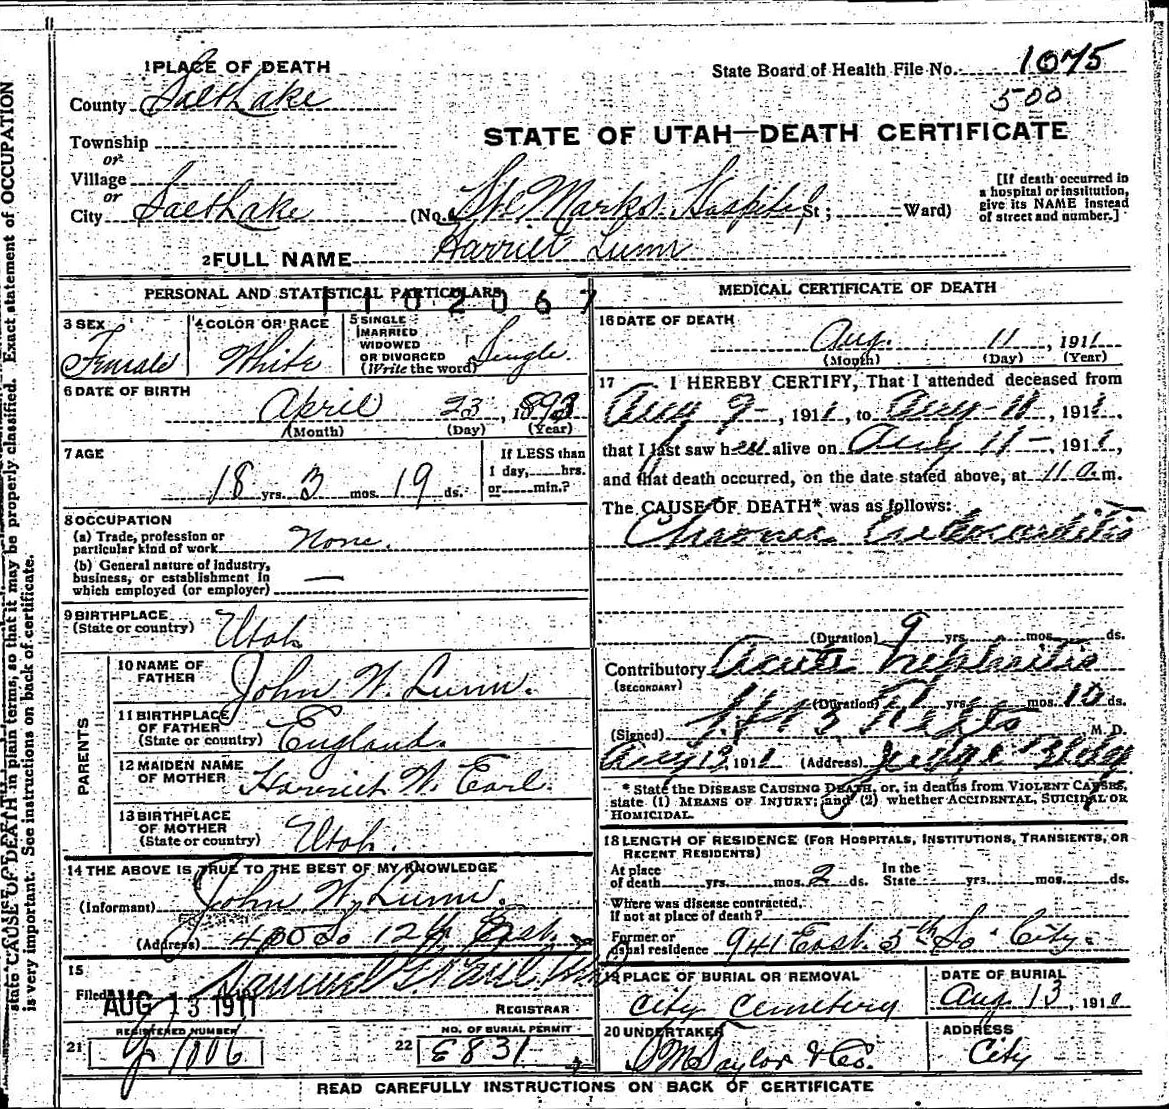 state CAUSE OF DEATH in plain terms, so that it may be properly classified. Exact statement of OCCUPATION
is very important. See instructions on back of certificate.
1 PLACE OF DEATH
State Board of Health File No. 1075
500
County Salt Lake
STATE OF UTAH—DEATH CERTIFICATE
Township
or
Village
or
City Salt Lake (No. St. Marks Hospital St; Ward)
[If death occurred in a hospital or institution, give its NAME instead of street and number.]
2 FULL NAME Harriet Lunn
PERSONAL AND STATISTICAL PARTICULARS
1102067
3 SEX Female
4 COLOR OR RACE White
5 SINGLE MARRIED WIDOWED OR DIVORCED (Write the word) Single
6 DATE OF BIRTH
April 23, 1893
(Month) (Day) (Year)
7 AGE
18 yrs. 3 mos. 19 ds.
If LESS than 1 day, hrs. or min.?
8 OCCUPATION
(a) Trade, profession or particular kind of work None.
(b) General nature of industry, business, or establishment in which employed (or employer) —
9 BIRTHPLACE (State or country) Utah
PARENTS
10 NAME OF FATHER John W. Lunn.
11 BIRTHPLACE OF FATHER (State or country) England.
12 MAIDEN NAME OF MOTHER Harriet W. Earl.
13 BIRTHPLACE OF MOTHER (State or country) Utah.
14 THE ABOVE IS TRUE TO THE BEST OF MY KNOWLEDGE
(Informant) John W. Lunn.
(Address) 400 So 12th East.
15
Filed AUG 13 1911 Samuel G.
REGISTRAR
21 REGISTERED NUMBER 1006
22 NO. OF BURIAL PERMIT E831
MEDICAL CERTIFICATE OF DEATH
16 DATE OF DEATH
Aug. 11, 1911
(Month) (Day) (Year)
17 I HEREBY CERTIFY, That I attended deceased from
Aug 9-, 1911, to Aug-11, 1911,
that I last saw her alive on Aug 11-, 1911,
and that death occurred, on the date stated above, at 11 a m.
The CAUSE OF DEATH* was as follows:
Chronic Endocarditis
(Duration) 9 yrs. mos. ds.
Contributory Acute Nephritis
(SECONDARY)
(Duration) yrs. mos. 10 ds.
(Signed) M. D.
Aug 13, 1911 (Address) Judge Bldg
* State the DISEASE CAUSING DEATH, or, in deaths from VIOLENT CAUSES, state (1) MEANS OF INJURY; and (2) whether ACCIDENTAL, SUICIDAL OR HOMICIDAL.
18 LENGTH OF RESIDENCE (FOR HOSPITALS, INSTITUTIONS, TRANSIENTS, OR RECENT RESIDENTS)
At place of death yrs. mos. 2 ds. In the State yrs. mos. ds.
Where was disease contracted, if not at place of death?
Former or usual residence 941 East 5th So City.
19 PLACE OF BURIAL OR REMOVAL
City Cemetery
DATE OF BURIAL
Aug 13, 1911
20 UNDERTAKER
S M Taylor & Co.
ADDRESS
City
READ CAREFULLY INSTRUCTIONS ON BACK OF CERTIFICATE